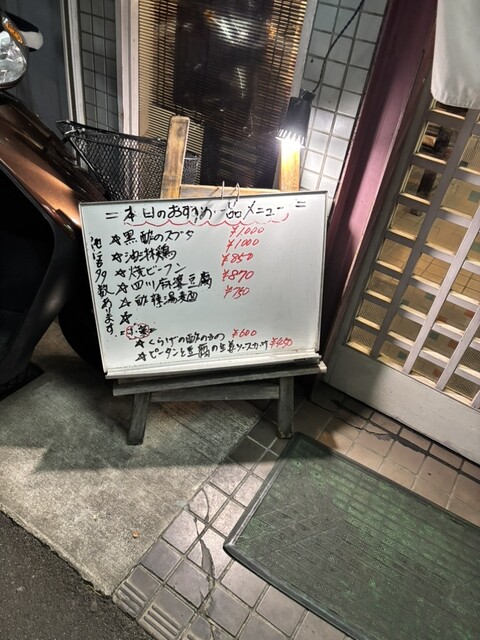 =本日のおすすめ一品メニュー=
☆黒酢のスブタ ¥1000
☆油淋鶏 ¥1000
☆焼ビーフン ¥850
☆四川麻婆豆腐 ¥870
☆酸辣湯麺 ¥750
☆
☆くらげの酢のもの ¥600
☆ピータンと豆腐の生姜ソースかけ ¥450
他にも多数あります。